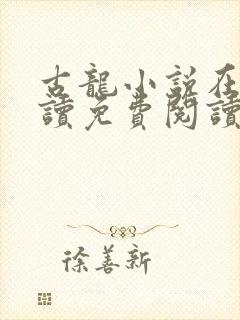 古龍小說在
讀免費閱讀
徐善新